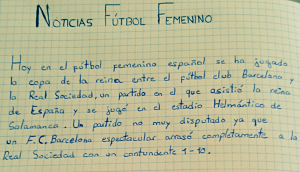 NOTICIAS FÚTBOL FEMENINO
Hoy en el fútbol femenino español se ha jugado
la copa de la reina entre el fútbol club Barcelona y
la Real Sociedad, un partido en el que asistió la reina
de España y se jugó en el estadio Helmántico de
Salamanca. Un partido no muy disputado ya que
un F.C. Barcelona espectacular arrasó completamente a la
Real Sociedad con un contundente 1-10.